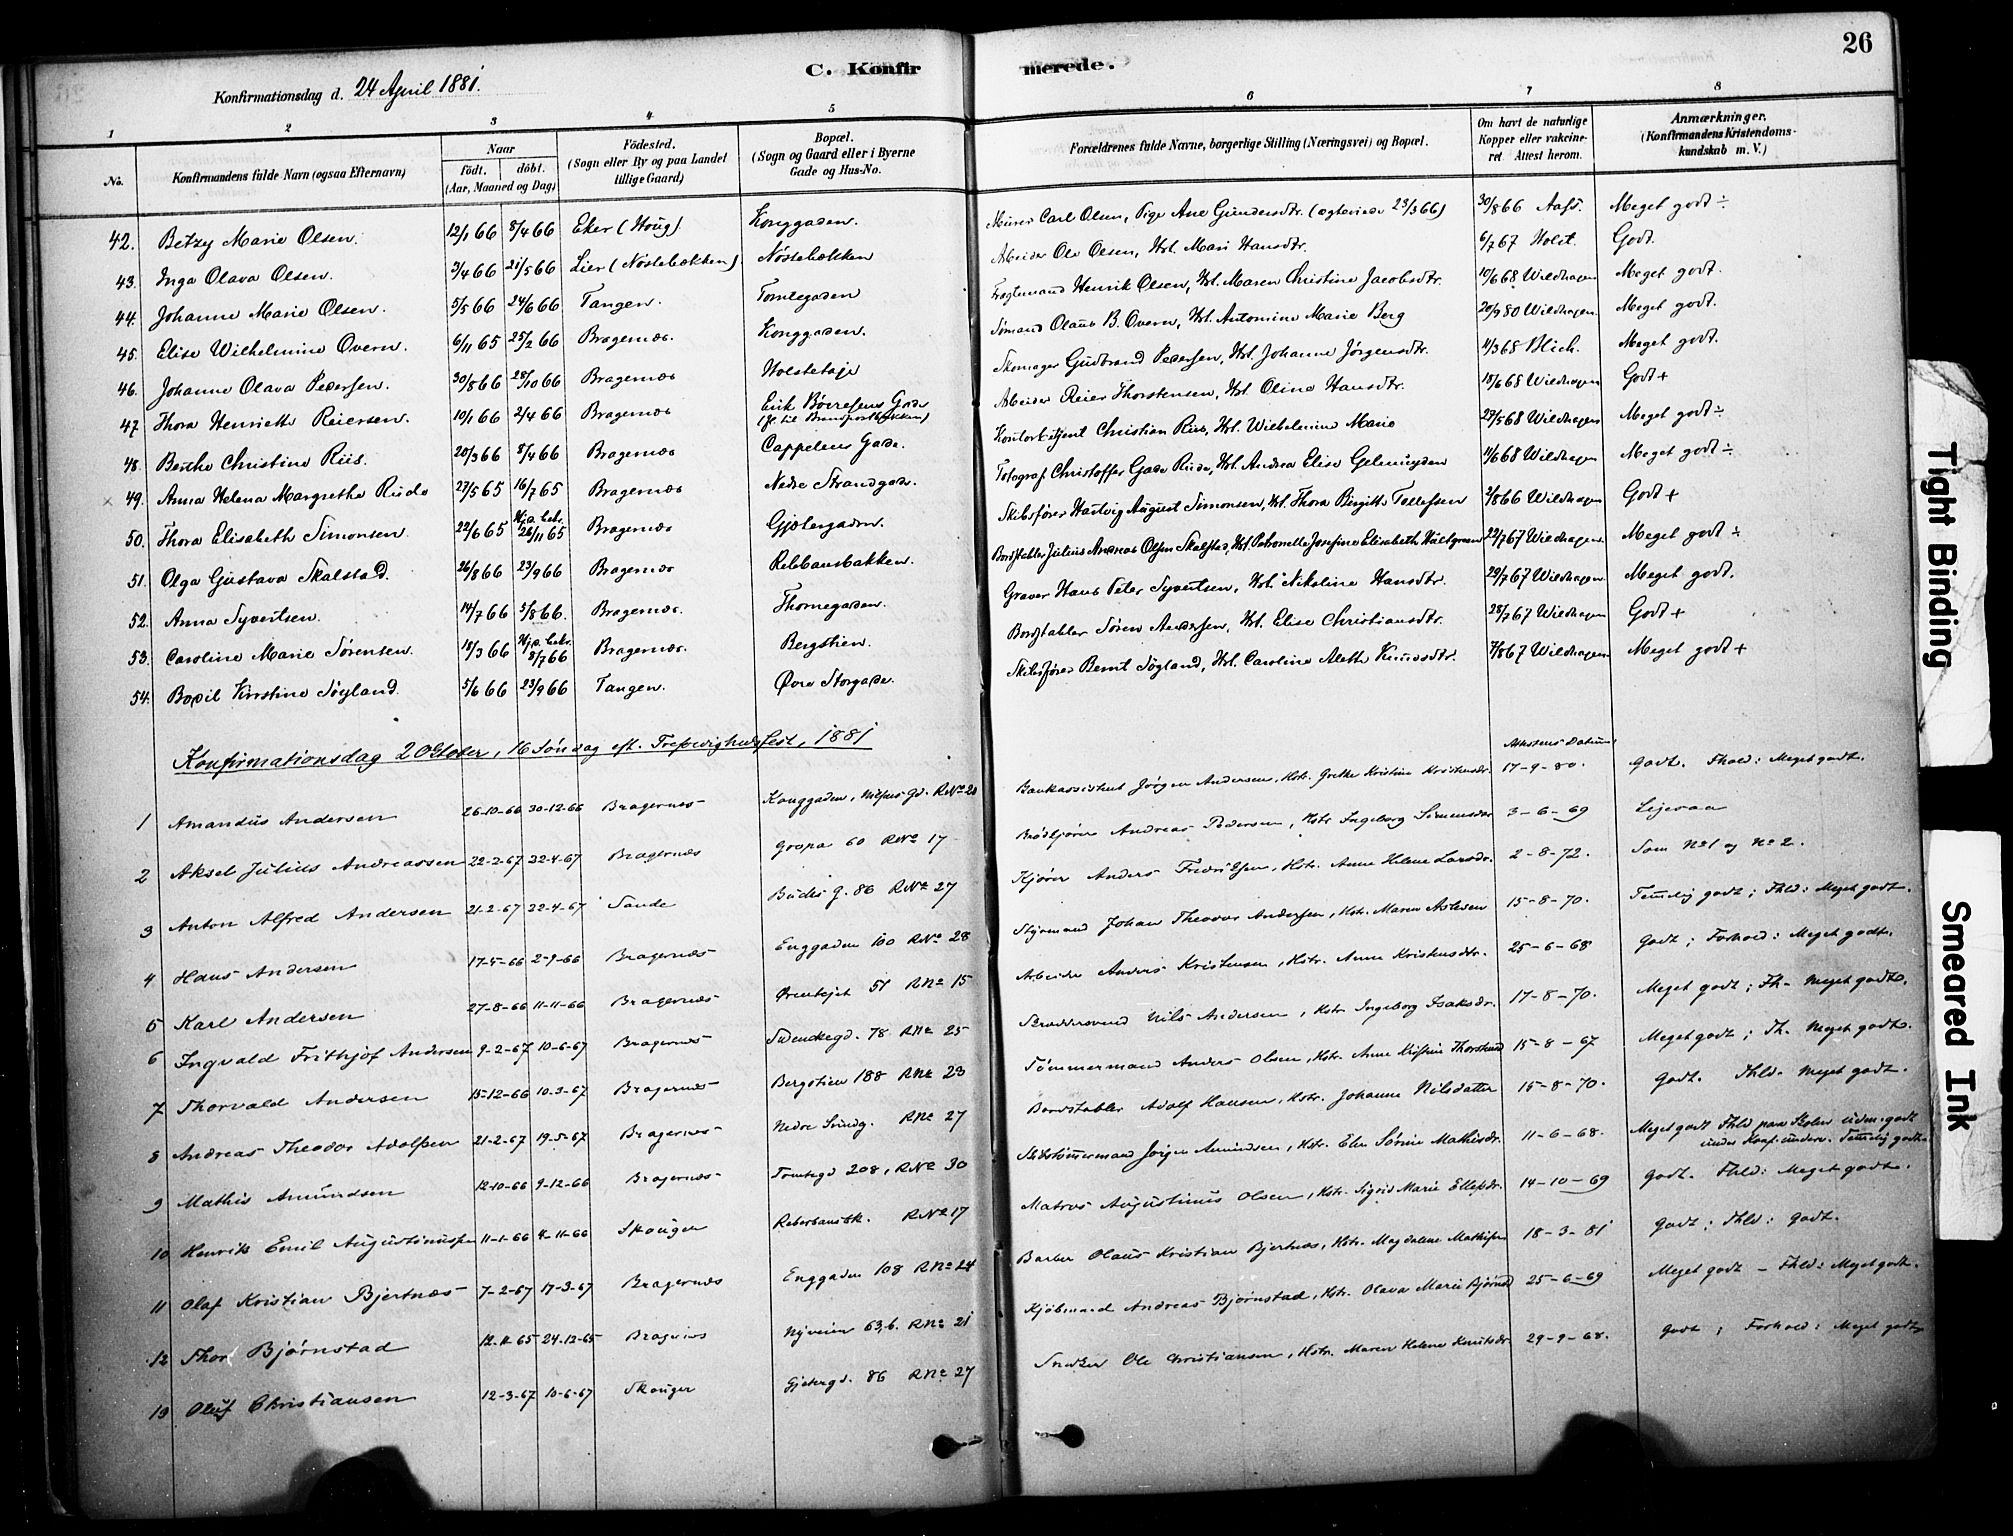 26
C. Konfirmerede.
Konfirmationsdag d. 24 April 1881.
1 2 3 4 5 6 7 8
No. Konfirmandens fulde Navn (ogsaa Efternavn) Naar født. døbt. (Aar, Maaned og Dag) Fødested. (Sogn eller By og paa Landet tillige Gaard) Bopæl. (Sogn og Gaard eller i Byerne Gade og Hus-No. Forældrenes fulde Navne, borgerlige Stilling (Næringsvei) og Bopæl. Om havt de naturlige Kopper eller vakcineret Attest herom. Anmærkninger. (Konfirmandens Kristendomskundskab m. V.)
42. Betzy Marie Olsen. 12/1 66 8/4 66 Eker (Houg) Konggaden. Murer Carl Olsen, Pige Ane Gundersdtr. (ægteviede 23/3 66) 30/8 66 Aass. Meget godt ÷
43. Inga Olava Olsen. 3/4 66 21/5 66 Lier (Nøstebækken) Nøstebækken Arbeider Ole Olsen, Hst. Mari Hansdtr. 6/7 67 Holst. Godt.
44. Johanne Marie Olsen. 5/5 66 24/6 66 Tangen. Tomtegaden Fragtemand Henrik Olsen, Hst. Maren Christine Jacobsdtr. 10/6 68 Wildhagen Meget godt.
45. Elise Wilhelmine Overn. 6/11 65 25/2 66 Bragernæs. Konggaden. Sømand Olaus B. Overn, Hst. Antomine Marie Berg 20/9 80 Wildhagen Meget godt.
46. Johanne Olava Pedersen. 30/8 66 28/10 66 Bragernæs Holsteløje Skomager Gudbrand Pedersen, Hst. Johanne Jørgensdtr. 4/3 68 Blich. Meget godt.
47 Thora Henriette Reiersen. 10/1 66 2/4 66 Bragernæs Erik Børresens Gade Arbeider Reier Thorstensen, Hst. Oline Hansdtr. 18/6 68 Wildhagen Godt +
48. Berthe Christine Riis. 20/3 66 8/4 66 Bragernæs Cappelens Gade. Kontorbetjent Christian Riis, Hst. Wilhelmine Marie 27/5 68 Wildhagen Meget godt ÷
× 49. Anna Helena Margrethe Riide 27/5 65 16/7 65 Bragernæs Nedre Strandgade. Fotograf Christoffer Gade Riide, Hst. Andrea Elise Gelmuyden 4/6 68 Wildhagen Meget godt ÷
50. Thora Elisabeth Simonsen. 22/6 65 Hj.d. bekr. 26/11 65 Bragernæs Gjetergaden. Skibsfører Hartvig August Simonsen, Hst. Thora Birgitte Tollefsen 3/8 66 Wildhagen Godt +
51. Olga Gustava Skalstad. 26/8 66 23/9 66 Bragernæs Rebbansbakken. Bordstabler Julius Andreas Olsen Skalstad, Hst. Petronelle Josefine Elisabeth Hultgreen 22/7 67 Wildhagen Meget godt ÷
52. Anna Syvertsen. 14/7 66 5/8 66. Bragernæs. Thornegaden. Graver Hans Peter Syvertsen, Hst. Nikoline Hansdtr. 29/7 67 Wildhagen. Meget godt.
53. Caroline Marie Sørensen. 18/3 66 Hj.d. bekr. 8/7 66 Bragernæs. Bergstien. Bordstabler Søren Andersen, Hst. Elise Christiansdtr. 28/7 67 Wildhagen Godt +
54. Bodil Kirstine Søyland. 5/6 66 23/9 66 Tangen. Øvre Storgade. Skibsfører Bernt Søyland, Hst. Caroline Alethe Knudsdtr. 7/8 67 Wildhagen Meget godt +
Konfirmationsdag 2 October, 16 Søndag eft. Trefoldighedsfest, 1881
Attestens Datum
1 Amandus Andersen 26-10-66 30-12-66 Bragernes Konggaden, R.No 20 Bankassistent Jørgen Andersen, Hstr. Grethe Kristine Kristensdr. 17-9-80. Godt. Fhold: Meget godt.
2 Aksel Julius Andreassen 22-2-67 22-4-67 Bragernæs Gropa 60 RNo 17 Brødkjører Andreas Pedersen, Hstr. Ingeborg Simensdr 3-6-69 Ligesaa
3 Anton Alfred Andersen 21-2-67 22-4-67 Sande g. 86 RNo 27 Kjører Anders Fredriksen, Hstr. Anne Helene Larsdr. 2-8-72. Som No 1 og No 2.
4 Hans Andersen 17-5-66 2-9-66 Bragernæs Enggaden 100 RNo 28 Styrmand Johan Theodor Andersen, Hstr. Maren Aslesen 15-8-70. Temelig godt; Fhld: Meget godt.
5 Karl Andersen 27-8-66 11-11-66 Bragernæs 51 RNo 15 Arbeider Anders Kristensen, Hstr. Anne Kristensdtr. 25-6-68 Godt; Forhold: Meget godt.
6 Ingvald Frithjof Andersen 9-2-67 10-6-67 Bragernæs Svenskegd. 78 RNo 25 Skræddersvend Nils Andersen, Hstr Ingeborg Isaksdr. 17-8-70. Meget godt; Fh- Meget godt.
7 Thorvald Andersen 15-12-66 10-3-67 Bragernæs Bergstien 188 RNo 23 Tømmermand Anders Olsen, Hstr. Anne Kristine Thorstensd 15-8-67 Meget godt; Fh. Meget godt.
8 Andreas Theodor Adolfsen 21-2-67 19-5-67 Bragernes Nedre Sundg. RNo 27 Bordstabler Adolf Hansen, Hstr. Johanne Nilsdatter 15-8-70. Godt. Fhld- Meget godt.
9 Mathis Amundsen 12-10-66 9-12-66 Bragernæs Tomtegd 208, RNo 30 Skibstømmermand Jørgen Amundsen, Hstr. Elen Sørine Mathisdr. 11-6-68. Meget godt Fhld paa Skolen udm. godt under Konf.underv. Temelig godt.
10 Henrik Emil Augustinussen 11-1-66 4-11-66 Skouger Reberbanebk. RNo 17 Matros Augustinus Olsen, Hstr. Sigrid Marie Ellefsdr. 14-10-69 Godt. Fhld: Meget godt.
11 Olaf Kristian Bjertnæs 7-2-67 17-3-67 Bragernæs Enggaden 108 RNo 24 Barber Olaus Kristian Bjertnæs, Hstr. Magdalene Mathisen 18-3-81 Godt; Fhld: Godt.
12 Thor Bjørnstad 12-11-65 24-12-65 Bragernes Nyveien 63,b. RNo 21 Kjøbmand Andreas Bjørnstad, Hstr. Olava Marie Bjørnstd 25-6-69 Meget godt - Fhld: Meget godt.
13 Oluf Christiansen 12-3-67 10-6-67 Skouger Gjetergd. 86 RNo 27 Snedker Ole Christiansen, Hstr. Maren Helene Knutsdr. 29-9-68. Godt; Forhold: Meget godt
Tight Binding
Smeared Ink